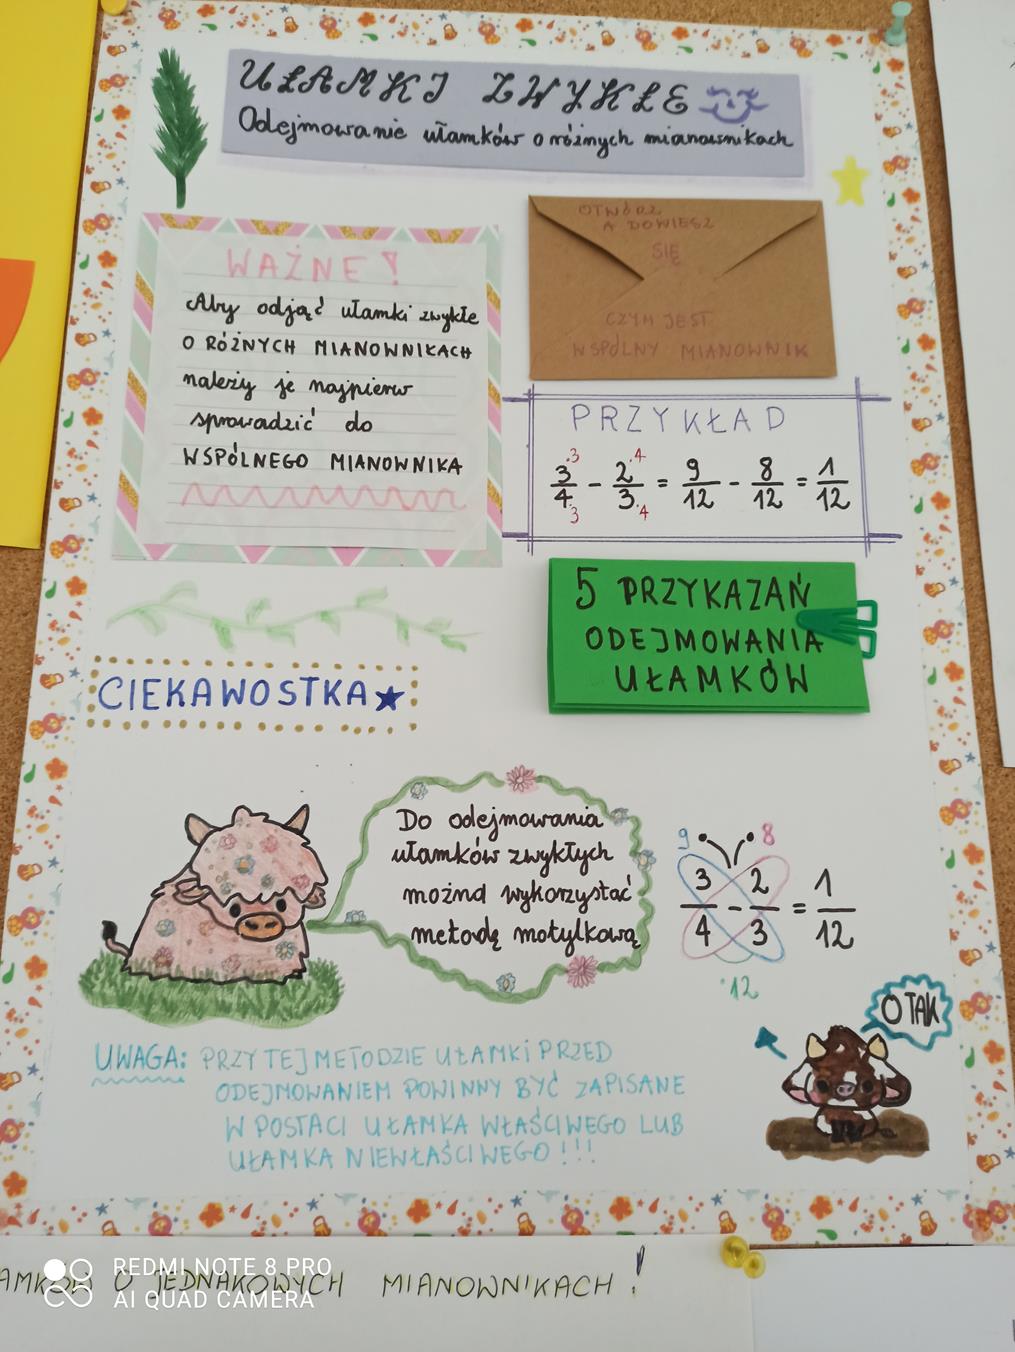 UŁAMKI ZWYKŁE
Odejmowanie ułamków o różnych mianownikach
WAŻNE!
Aby odjąć ułamki zwykłe
O RÓŻNYCH MIANOWNIKACH
należy je najpierw
sprowadzić do
WSPÓLNEGO MIANOWNIKA
OTWÓRZ
A DOWIESZ
SIĘ
CZYM JEST
WSPÓLNY MIANOWNIK
PRZYKŁAD
3·3/4·3 - 2·4/3·4 = 9/12 - 8/12 = 1/12
5 PRZYKAZAŃ
ODEJMOWANIA
UŁAMKÓW
CIEKAWOSTKA
Do odejmowania
ułamków zwykłych
można wykorzystać
metodę motylkową
9 8
3/4 - 2/3 = 1/12
·12
O TAK
UWAGA: PRZY TEJ METODZIE UŁAMKI PRZED
ODEJMOWANIEM POWINNY BYĆ ZAPISANE
W POSTACI UŁAMKA WŁAŚCIWEGO LUB
UŁAMKA NIEWŁAŚCIWEGO!!!
AMKÓW O JEDNAKOWYCH MIANOWNIKACH!
REDMI NOTE 8 PRO
AI QUAD CAMERA